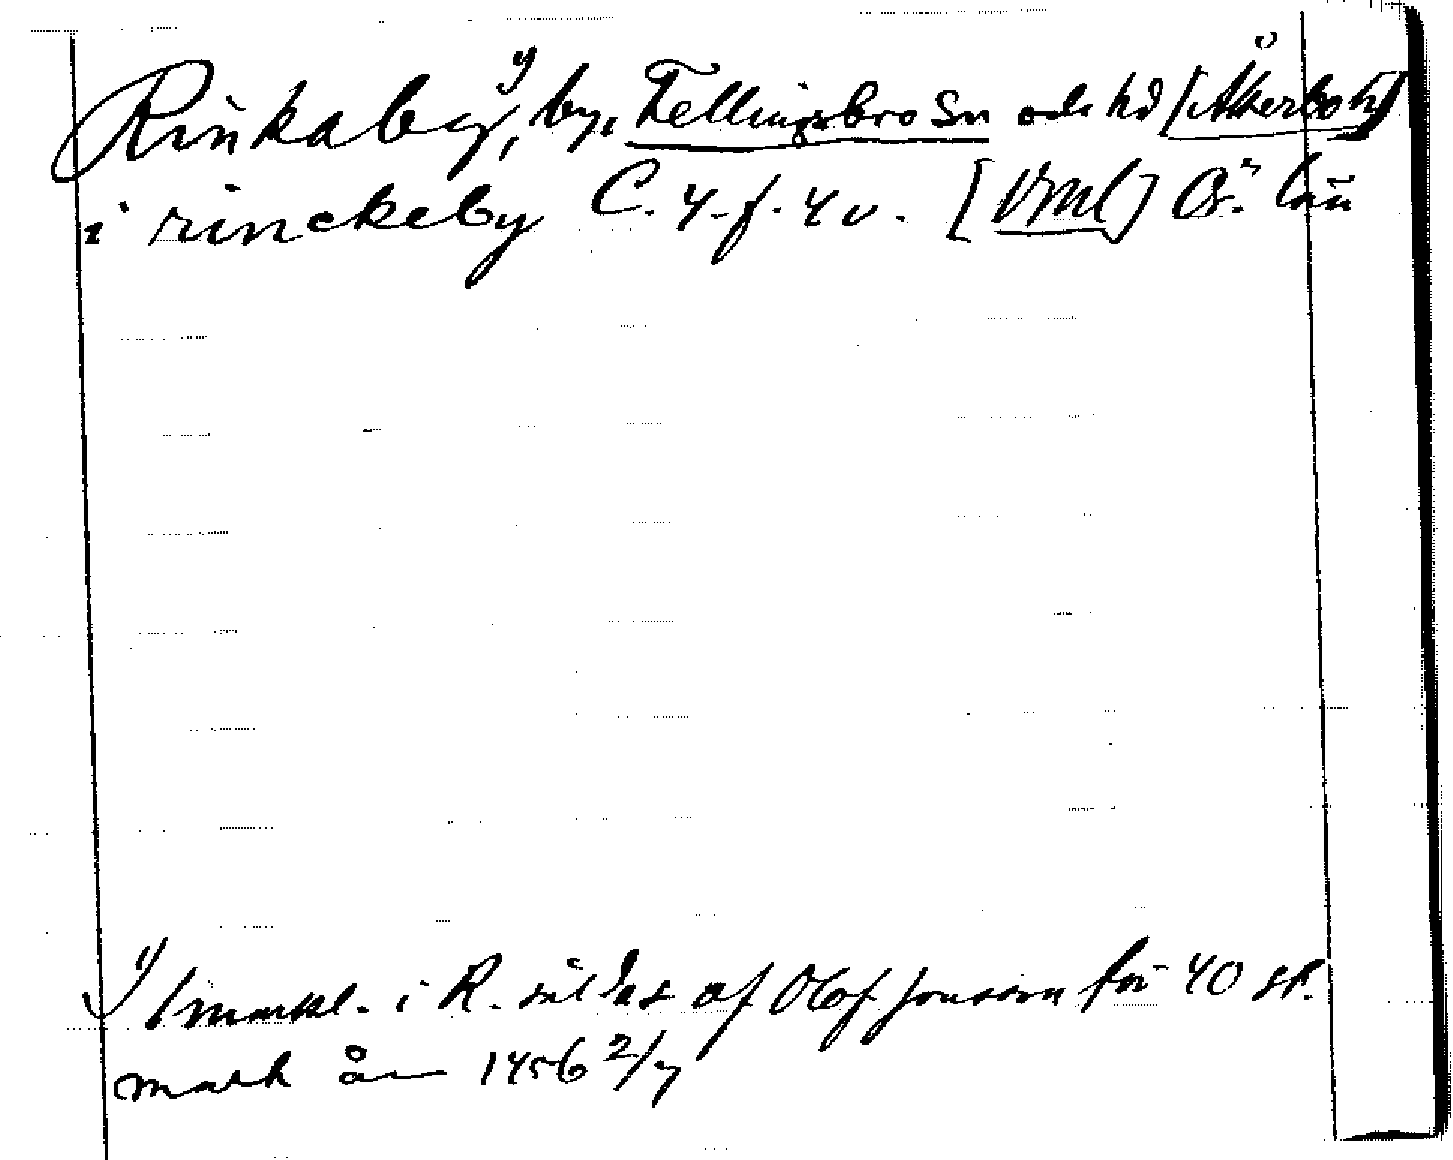 Rinkaby y), by, Fellingsbro Sn och hd [Åkerbo h]
i rinckeby C. 4. f. 4 v. [Vml] Ör. län
y) 1 markl. i R. såldes af Olof Jonsson för 40 st.
mark år 1456 2/7